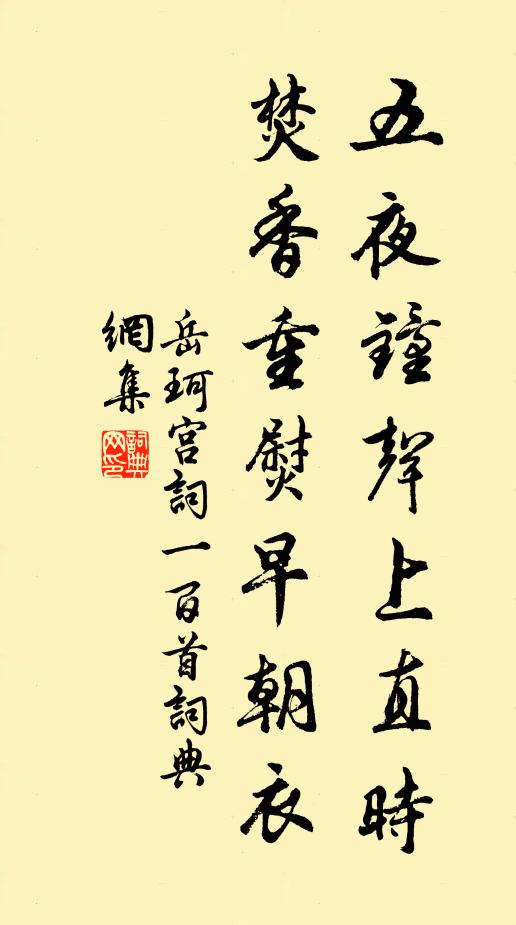 五夜鐘聲上直時
焚香重熨早朝衣
岳珂宮詞一百首詞典
網集
詞典网印